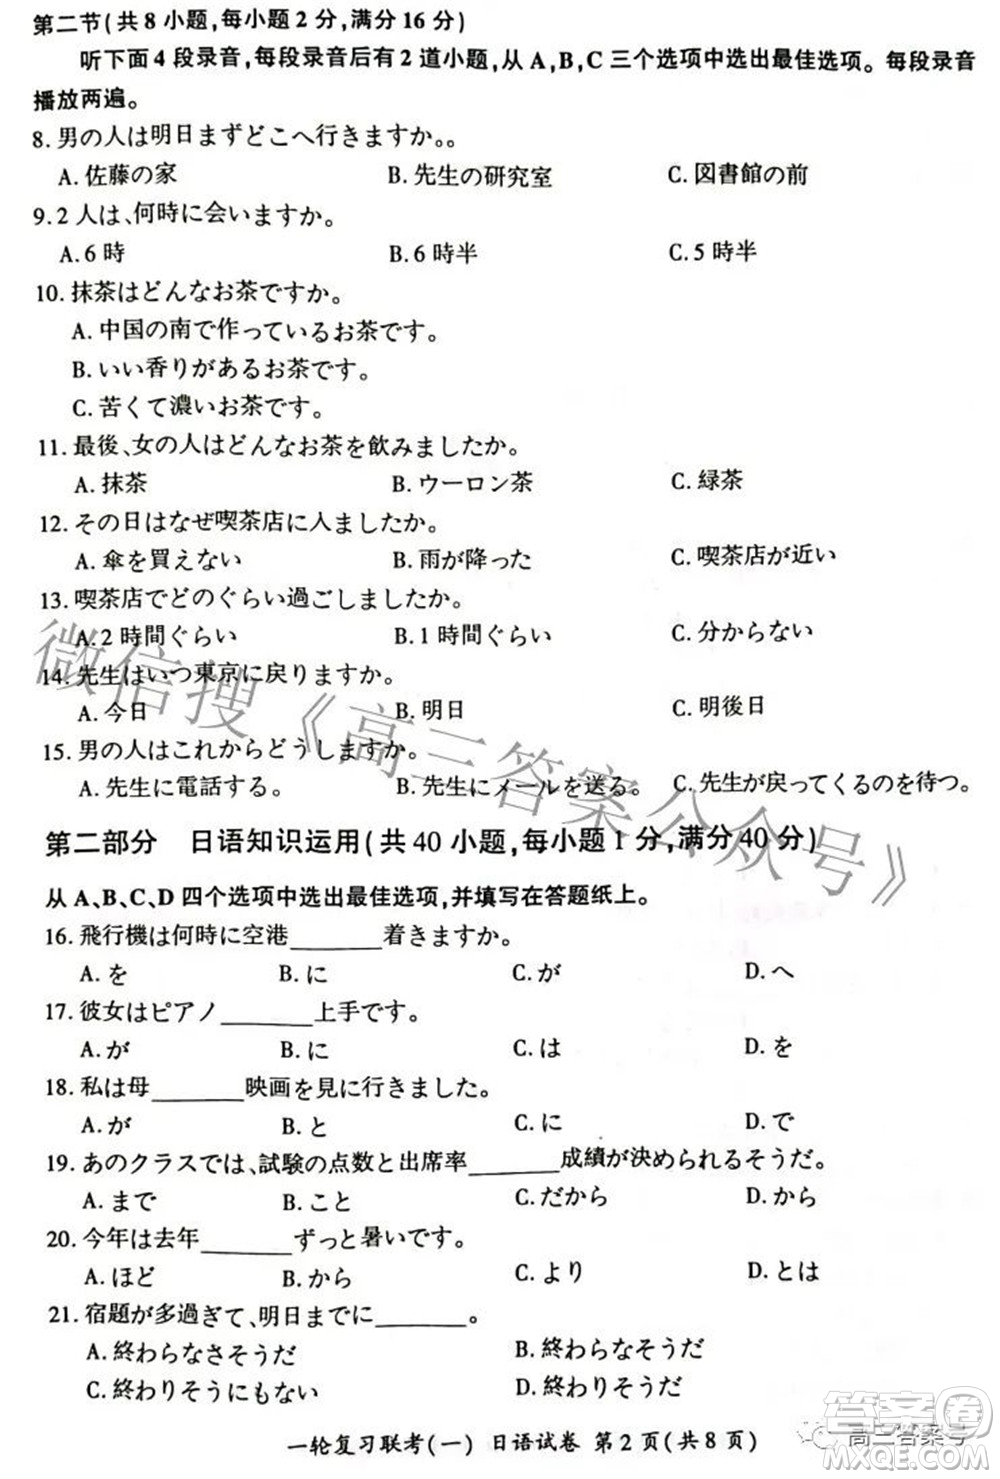 第二节(共8小题,每小题2分,满分16分)
听下面4段录音,每段录音后有2道小题,从A,B,C三个选项中选出最佳选项。每段录音
播放两遍。
8. 男の人は明日まずどこへ行きますか。。
A. 佐藤の家 B. 先生の研究室 C. 図書館の前
9. 2人は、何時に会いますか。
A. 6時 B. 6時半 C. 5時半
10. 抹茶はどんなお茶ですか。
A. 中国の南で作っているお茶です。
B. いい香りがあるお茶です。
C. 苦くて濃いお茶です。
11. 最後、女の人はどんなお茶を飲みましたか。
A. 抹茶 B. ウーロン茶 C. 緑茶
12. その日はなぜ喫茶店に入ましたか。
A. 傘を買えない B. 雨が降った C. 喫茶店が近い
13. 喫茶店でどのぐらい過ごしましたか。
A. 2時間ぐらい B. 1時間ぐらい C. 分からない
14. 先生はいつ東京に戻りますか。
A. 今日 B. 明日 C. 明後日
15. 男の人はこれからどうしますか。
A. 先生に電話する。 B. 先生にメールを送る。 C. 先生が戻ってくるのを待つ。
第二部分 日语知识运用(共40小题,每小题1分,满分40分)
从A、B、C、D四个选项中选出最佳选项,并填写在答题纸上。
16. 飛行機は何時に空港______着きますか。
A. を B. に C. が D. へ
17. 彼女はピアノ______上手です。
A. が B. に C. は D. を
18. 私は母______映画を見に行きました。
A. が B. と C. に D. で
19. あのクラスでは、試験の点数と出席率______成績が決められるそうだ。
A. まで B. こと C. だから D. から
20. 今年は去年______ずっと暑いです。
A. ほど B. から C. より D. とは
21. 宿題が多過ぎて、明日までに______。
A. 終わらなさそうだ B. 終わらないそうだ
C. 終わりそうにもない D. 終わりそうだ
一轮复习联考(一) 日语试卷 第2页(共8页)
微信搜《高三答案公众号》
高三答案号
答案圈
MXQE.COM